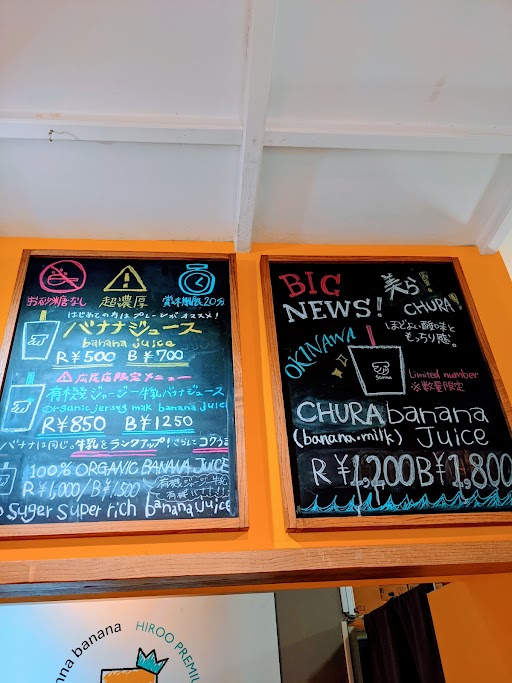 お砂糖なし 超濃厚 賞味期限20分
はじめての方はプレーンがオススメ!
バナナジュース
banana juice
R ¥500 B ¥700
⚠広尾店限定メニュー
有機ジャージー牛乳バナナジュース
organic jersey milk banana juice
R ¥850 B ¥1250
バナナは同じ。牛乳をランクアップ!さらにコクうま
100% ORGANIC BANANA JUICE
R ¥1,000/B ¥1,500
有機ジャージー牛乳
suger super rich banana juice
BIG
NEWS!
美ら!
CHURA!
ほどよい酸味と
もっちり感。
OKINAWA
Limited number
※数量限定
CHURA banana
(banana・milk) Juice
R ¥1,200 B ¥1,800
nna banana HIROO PREMIU